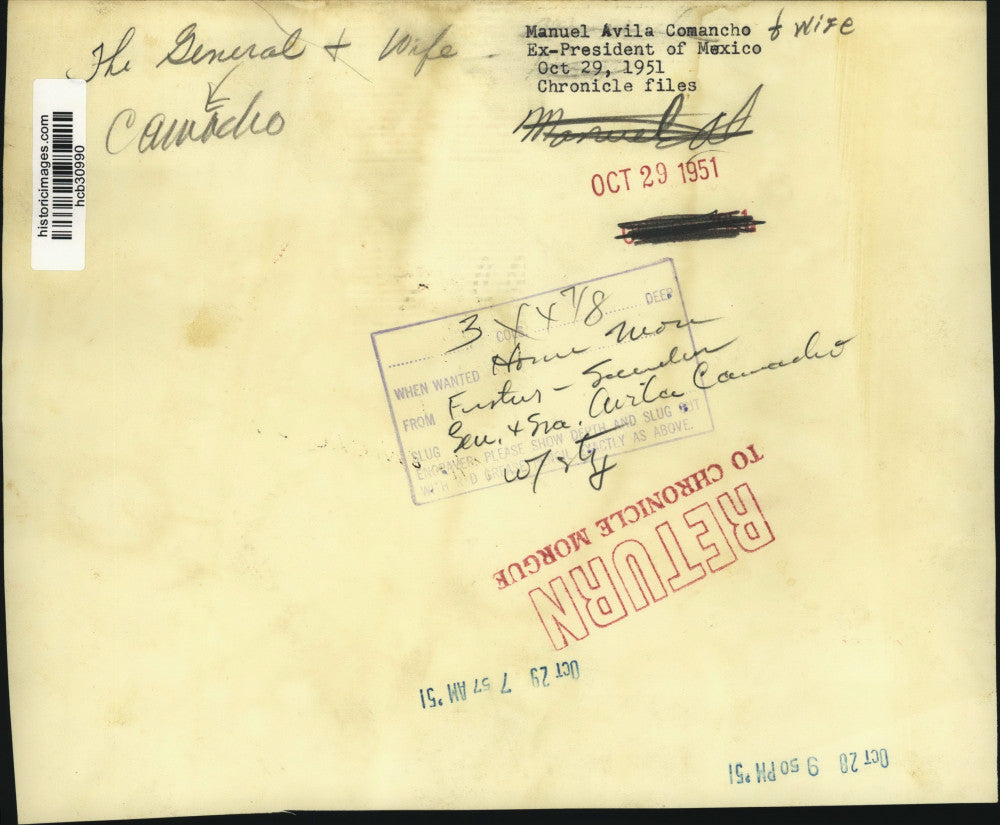 The General & Wife
Camacho
Manuel Avila Comancho & Wife
Ex-President of Mexico
Oct 29, 1951
Chronicle files
Manuel
OCT 29 1951
historicimages.com
hcb30990
3 X X 7/8
COLS. DEEP
WHEN WANTED Home Mon
FROM Foster -
SLUG Gen. & Sra. Avila Camacho
ENGRAVER: PLEASE SHOW DEPTH AND SLUG OUT
EXACTLY AS ABOVE.
w/sty
RETURN
TO CHRONICLE MORGUE
OCT 29 7 57 AM '51
OCT 28 9 50 PM '51